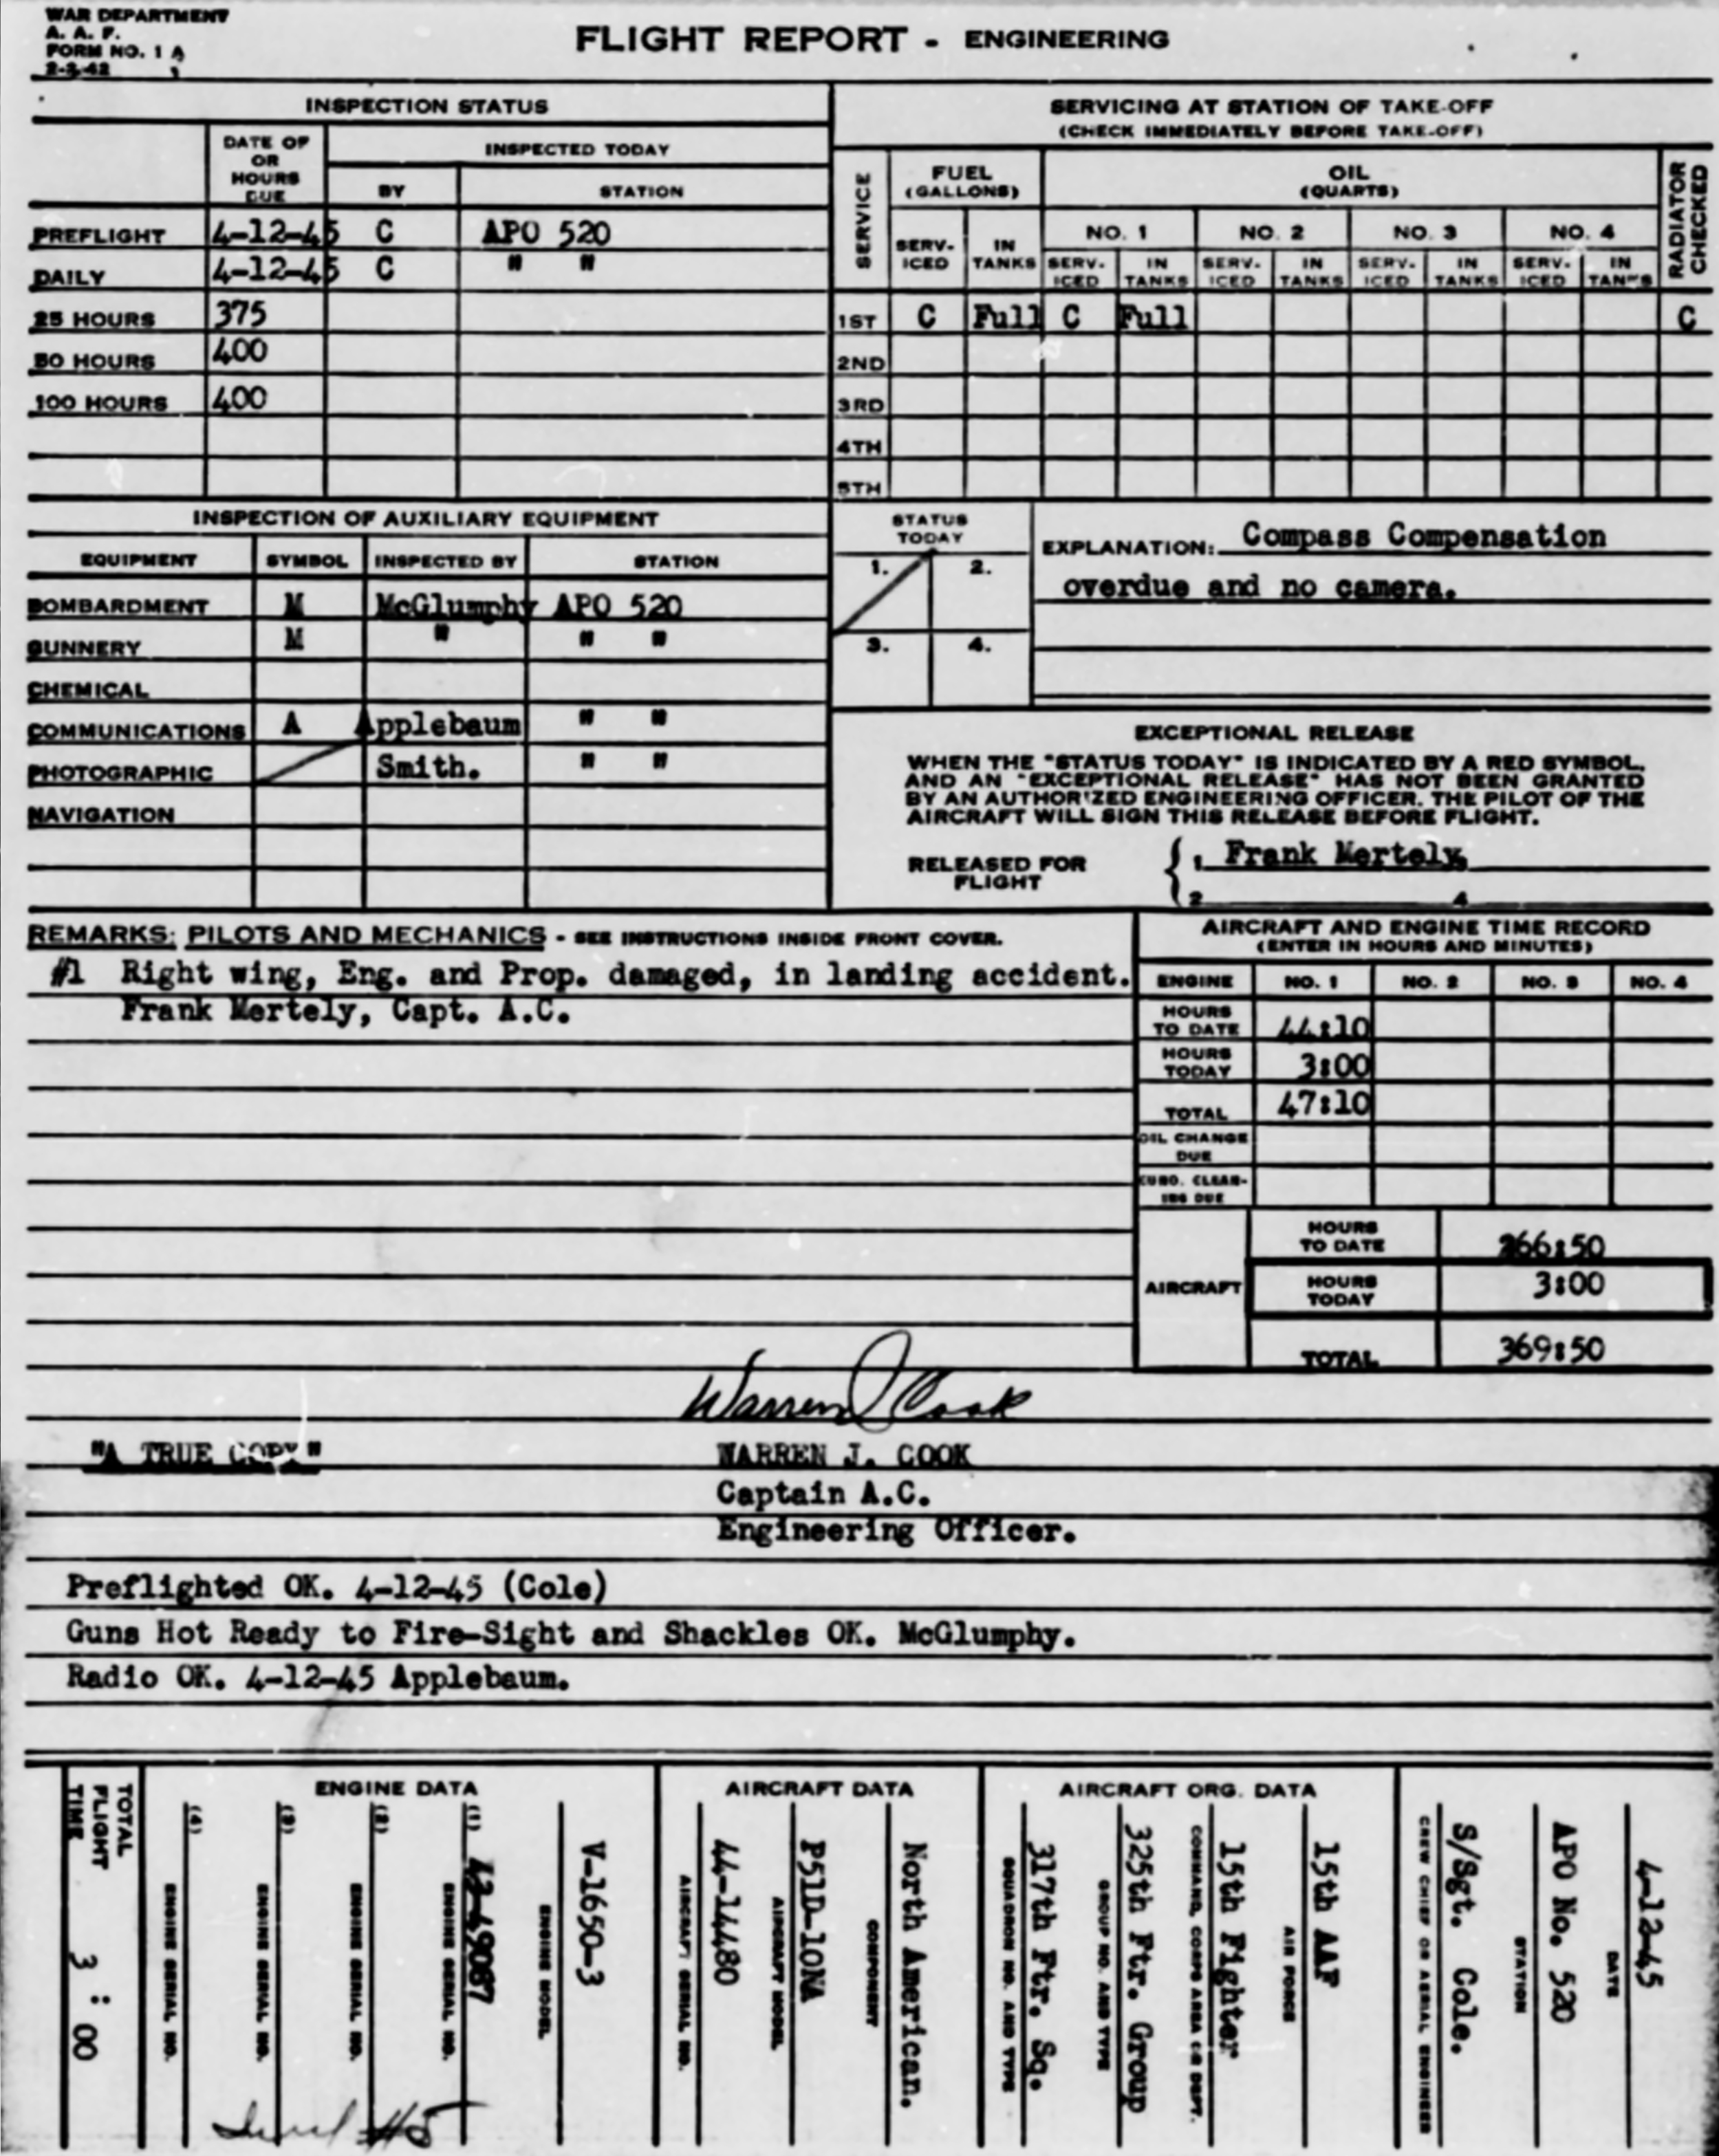 WAR DEPARTMENT
A. A. F.
FORM NO. 1 A
2-3-42
FLIGHT REPORT - ENGINEERING
INSPECTION STATUS
DATE OF OR HOURS DUE
INSPECTED TODAY
BY STATION
PREFLIGHT 4-12-45 C APO 520
DAILY 4-12-45 C " "
25 HOURS 375
50 HOURS 400
100 HOURS 400
SERVICING AT STATION OF TAKE-OFF
(CHECK IMMEDIATELY BEFORE TAKE-OFF)
SERVICE
FUEL (GALLONS)
OIL (QUARTS)
RADIATOR CHECKED
NO. 1 NO. 2 NO. 3 NO. 4
SERV-ICED IN TANKS SERV-ICED IN TANKS SERV-ICED IN TANKS SERV-ICED IN TANKS SERV-ICED IN TANKS
1ST C Full C Full C
2ND
3RD
4TH
5TH
INSPECTION OF AUXILIARY EQUIPMENT
EQUIPMENT SYMBOL INSPECTED BY STATION
BOMBARDMENT M McGlumphy APO 520
GUNNERY M " " "
CHEMICAL
COMMUNICATIONS A Applebaum " "
PHOTOGRAPHIC Smith. " "
NAVIGATION
STATUS TODAY
1. 2.
3. 4.
EXPLANATION: Compass Compensation
overdue and no camera.
EXCEPTIONAL RELEASE
WHEN THE "STATUS TODAY" IS INDICATED BY A RED SYMBOL,
AND AN "EXCEPTIONAL RELEASE" HAS NOT BEEN GRANTED
BY AN AUTHORIZED ENGINEERING OFFICER, THE PILOT OF THE
AIRCRAFT WILL SIGN THIS RELEASE BEFORE FLIGHT.
RELEASED FOR FLIGHT
1. Frank Mertely,
2 4
REMARKS: PILOTS AND MECHANICS - SEE INSTRUCTIONS INSIDE FRONT COVER.
#1 Right wing, Eng. and Prop. damaged, in landing accident.
Frank Mertely, Capt. A.C.
AIRCRAFT AND ENGINE TIME RECORD
(ENTER IN HOURS AND MINUTES)
ENGINE NO. 1 NO. 2 NO. 3 NO. 4
HOURS TO DATE 44:10
HOURS TODAY 3:00
TOTAL 47:10
OIL CHANGE DUE
CUNO. CLEAN-ING DUE
AIRCRAFT
HOURS TO DATE 366:50
HOURS TODAY 3:00
TOTAL 369:50
Warren J Cook
"A TRUE COPY"
WARREN J. COOK
Captain A.C.
Engineering Officer.
Preflighted OK. 4-12-45 (Cole)
Guns Hot Ready to Fire-Sight and Shackles OK. McGlumphy.
Radio OK. 4-12-45 Applebaum.
TOTAL FLIGHT TIME 3 : 00
ENGINE DATA
(4) ENGINE SERIAL NO.
(3) ENGINE SERIAL NO.
(2) ENGINE SERIAL NO.
(1) ENGINE SERIAL NO.
V-1650-3
ENGINE MODEL
AIRCRAFT DATA
44-14480
AIRCRAFT SERIAL NO.
P51D-10NA
AIRCRAFT MODEL
North American.
COMPONENT
AIRCRAFT ORG. DATA
317th Ftr. Sq.
SQUADRON NO. AND TYPE
325th Ftr. Group
GROUP NO. AND TYPE
15th Fighter
COMMAND, CORPS AREA OR DEPT.
15th AAF
AIR FORCE
S/Sgt. Cole.
CREW CHIEF OR AERIAL ENGINEER
APO No. 520
STATION
4-12-45
DATE